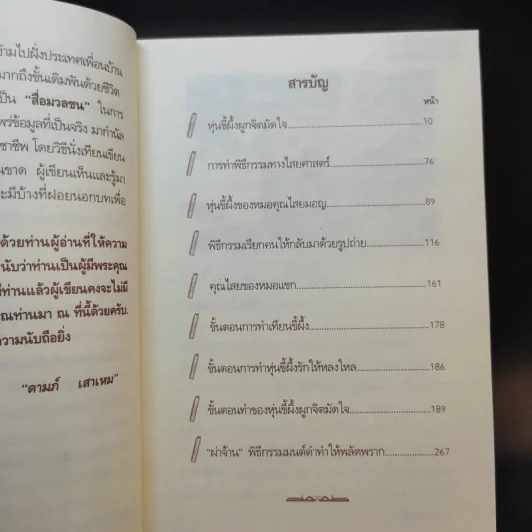 ข้ามไปฝั่งประเทศเพื่อนบ้าน
มากถึงขั้นเดิมพันด้วยชีวิต
เป็น "สื่อมวลชน" ในการ
แพร่ข้อมูลที่เป็นจริง มากำนัล
าชีพ โดยวิธีนั่งเทียนเขียน
นขาด ผู้เขียนเห็นและรู้มา
ะมีบ้างที่ฝอยนอกบทเพื่อ
ด้วยท่านผู้อ่านที่ให้ความ
นับว่าท่านเป็นผู้มีพระคุณ
ท่านแล้วผู้เขียนคงจะไม่มี
ณท่านมา ณ ที่นี้ด้วยครับ.
วามนับถือยิ่ง
"ดามภ์ เสาเหม"
สารบัญ
หน้า
หุ่นขี้ผึ้งผูกจิตมัดใจ...10
การทำพิธีกรรมทางไสยศาสตร์...76
หุ่นขี้ผึ้งของหมอคุณไสยมอญ...89
พิธีกรรมเรียกคนให้กลับมาด้วยรูปถ่าย...116
คุณไสยของหมอแขก...161
ขั้นตอนการทำเทียนขี้ผึ้ง...178
ขั้นตอนการทำหุ่นขี้ผึ้งรักให้หลงใหล...186
ขั้นตอนทำของหุ่นขี้ผึ้งผูกจิตมัดใจ...189
"ผ่าจ้าน" พิธีกรรมมนต์ดำทำให้พลัดพราก...267